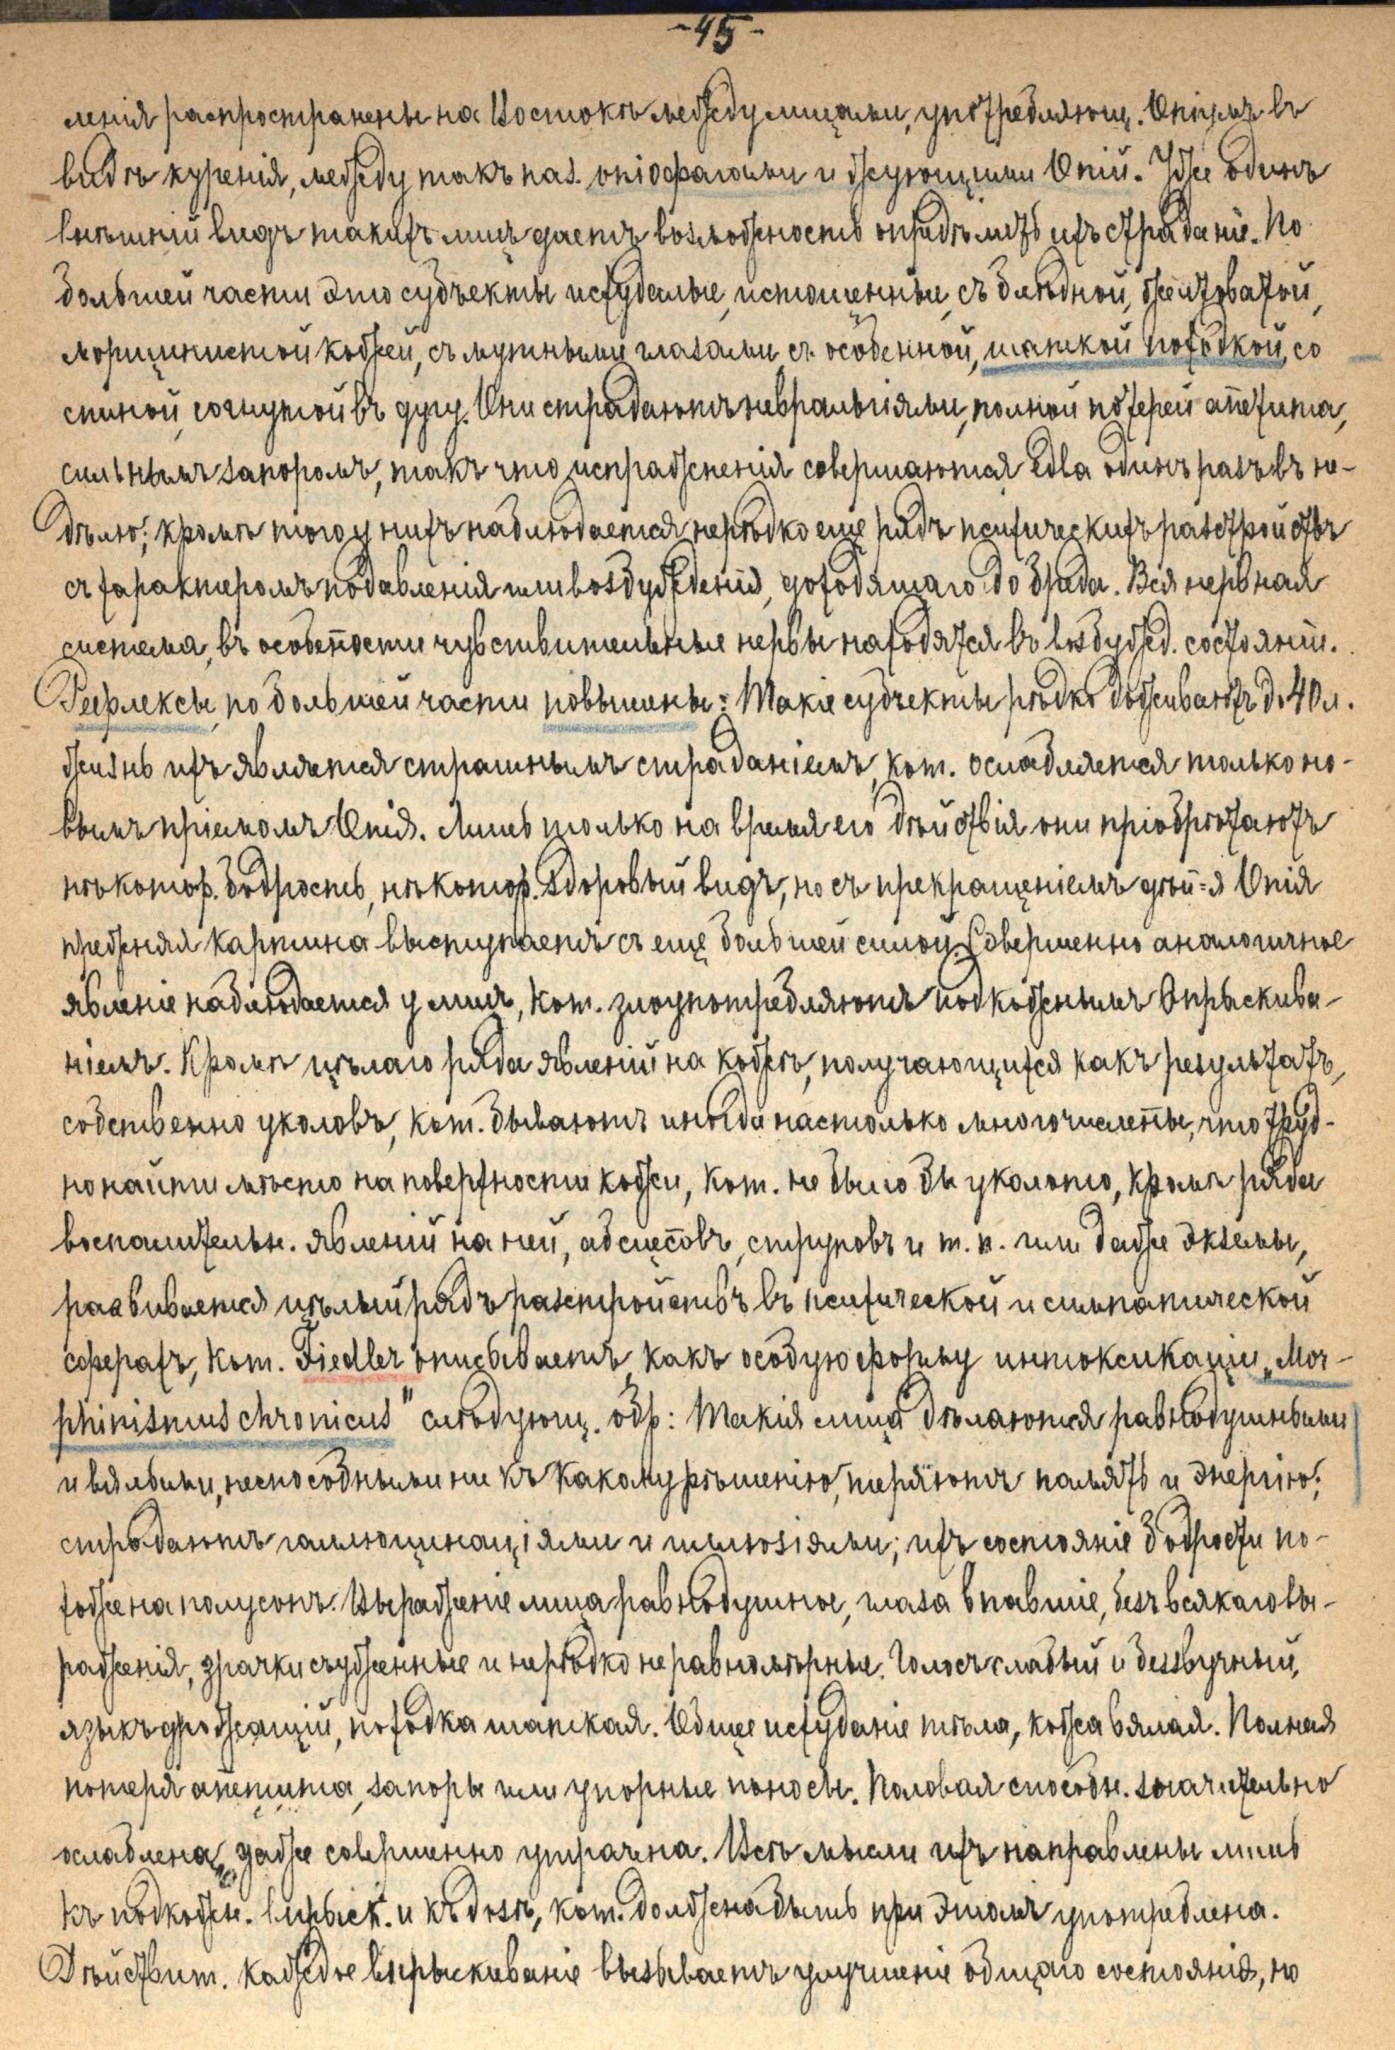 -45-
ленія распространены на Востокѣ между лицами, употребляющ. Опіумъ въ
видѣ куренія, между такъ наз. опіофагами и жующими Опій. Уже одинъ
внѣшній видъ такихъ лицъ даетъ возможность опредѣлить ихъ страданіе. По
большей части это субъекты исхудалые, истощенные, съ блѣдной, желтоватой,
морщинистой кожей, съ мутными глазами, съ особенной, шаткой походкой, со
спиной, согнутой въ дугу. Они страдаютъ невралгіями, полной потерей аппетита,
сильнымъ запоромъ, такъ что испражненія совершаются едва одинъ разъ въ не-
дѣлю; кромѣ того у нихъ наблюдается нерѣдко еще рядъ психическихъ разстройствъ
съ характеромъ подавленія или возбужденія, доходящаго до бреда. Вся нервная
система, въ особенности чувствительные нервы находятся въ возбужд. состояніи.
Рефлексы по большей части повышены: Такіе субъекты рѣдко доживаютъ до 40 л.
жизнь ихъ является страшнымъ страданіемъ, кот. ослабляется только но-
вымъ пріемомъ Опія. Лишь только на время его дѣйствія они пріобрѣтаютъ
нѣкотор. бодрость, нѣкотор. здоровый видъ, но съ прекращеніемъ дѣй=я Опія
прежняя картина выступаетъ съ еще большей силой. Совершенно аналогичное
явленіе наблюдается у лицъ, кот. злоупотребляютъ подкожнымъ впрыскива-
ніемъ. Кромѣ цѣлаго ряда явленій на кожѣ, получающихся какъ результатъ,
собственно уколовъ, кот. бываютъ иногда настолько многочислены, что труд-
но найти мѣсто на поверхности кожи, кот. не было бы уколото, кромѣ ряда
воспалительн. явленій на ней, абсцессовъ, струповъ и т. п. или даже экземы,
развивается цѣлый рядъ разстройствъ въ психической и симпатической
сферахъ, кот. Fiedler описываетъ, какъ особую форму интоксикаціи „Mor-
phinismus chronicus" слѣдующ. обр: Такія лица дѣлаются равнодушными
и вялыми, неспособными ни къ какому рѣшенію, теряютъ память и энергію;
страдаютъ галлюцинаціями и иллюзіями; ихъ состояніе бодрости по-
хоже на полусонъ. Выраженіе лица равнодушное, глаза впавшіе, безъ всякаго вы-
раженія, зрачки съуженные и нерѣдко неравномѣрные. Голосъ слабый и беззвучный,
языкъ дрожащій, походка шаткая. Общее исхуданіе тѣла, кожа вялая. Полная
потеря аппетита, запоры или упорные поносы. Половая способн. значительно
ослаблена, даже совершенно утрачена. Всѣ мысли ихъ направлены лишь
къ подкожн. впрыск. и къ дозѣ, кот. должна быть при этомъ употреблена.
Дѣйствит. каждое впрыскиваніе вызываетъ улучшеніе общаго состоянія, но